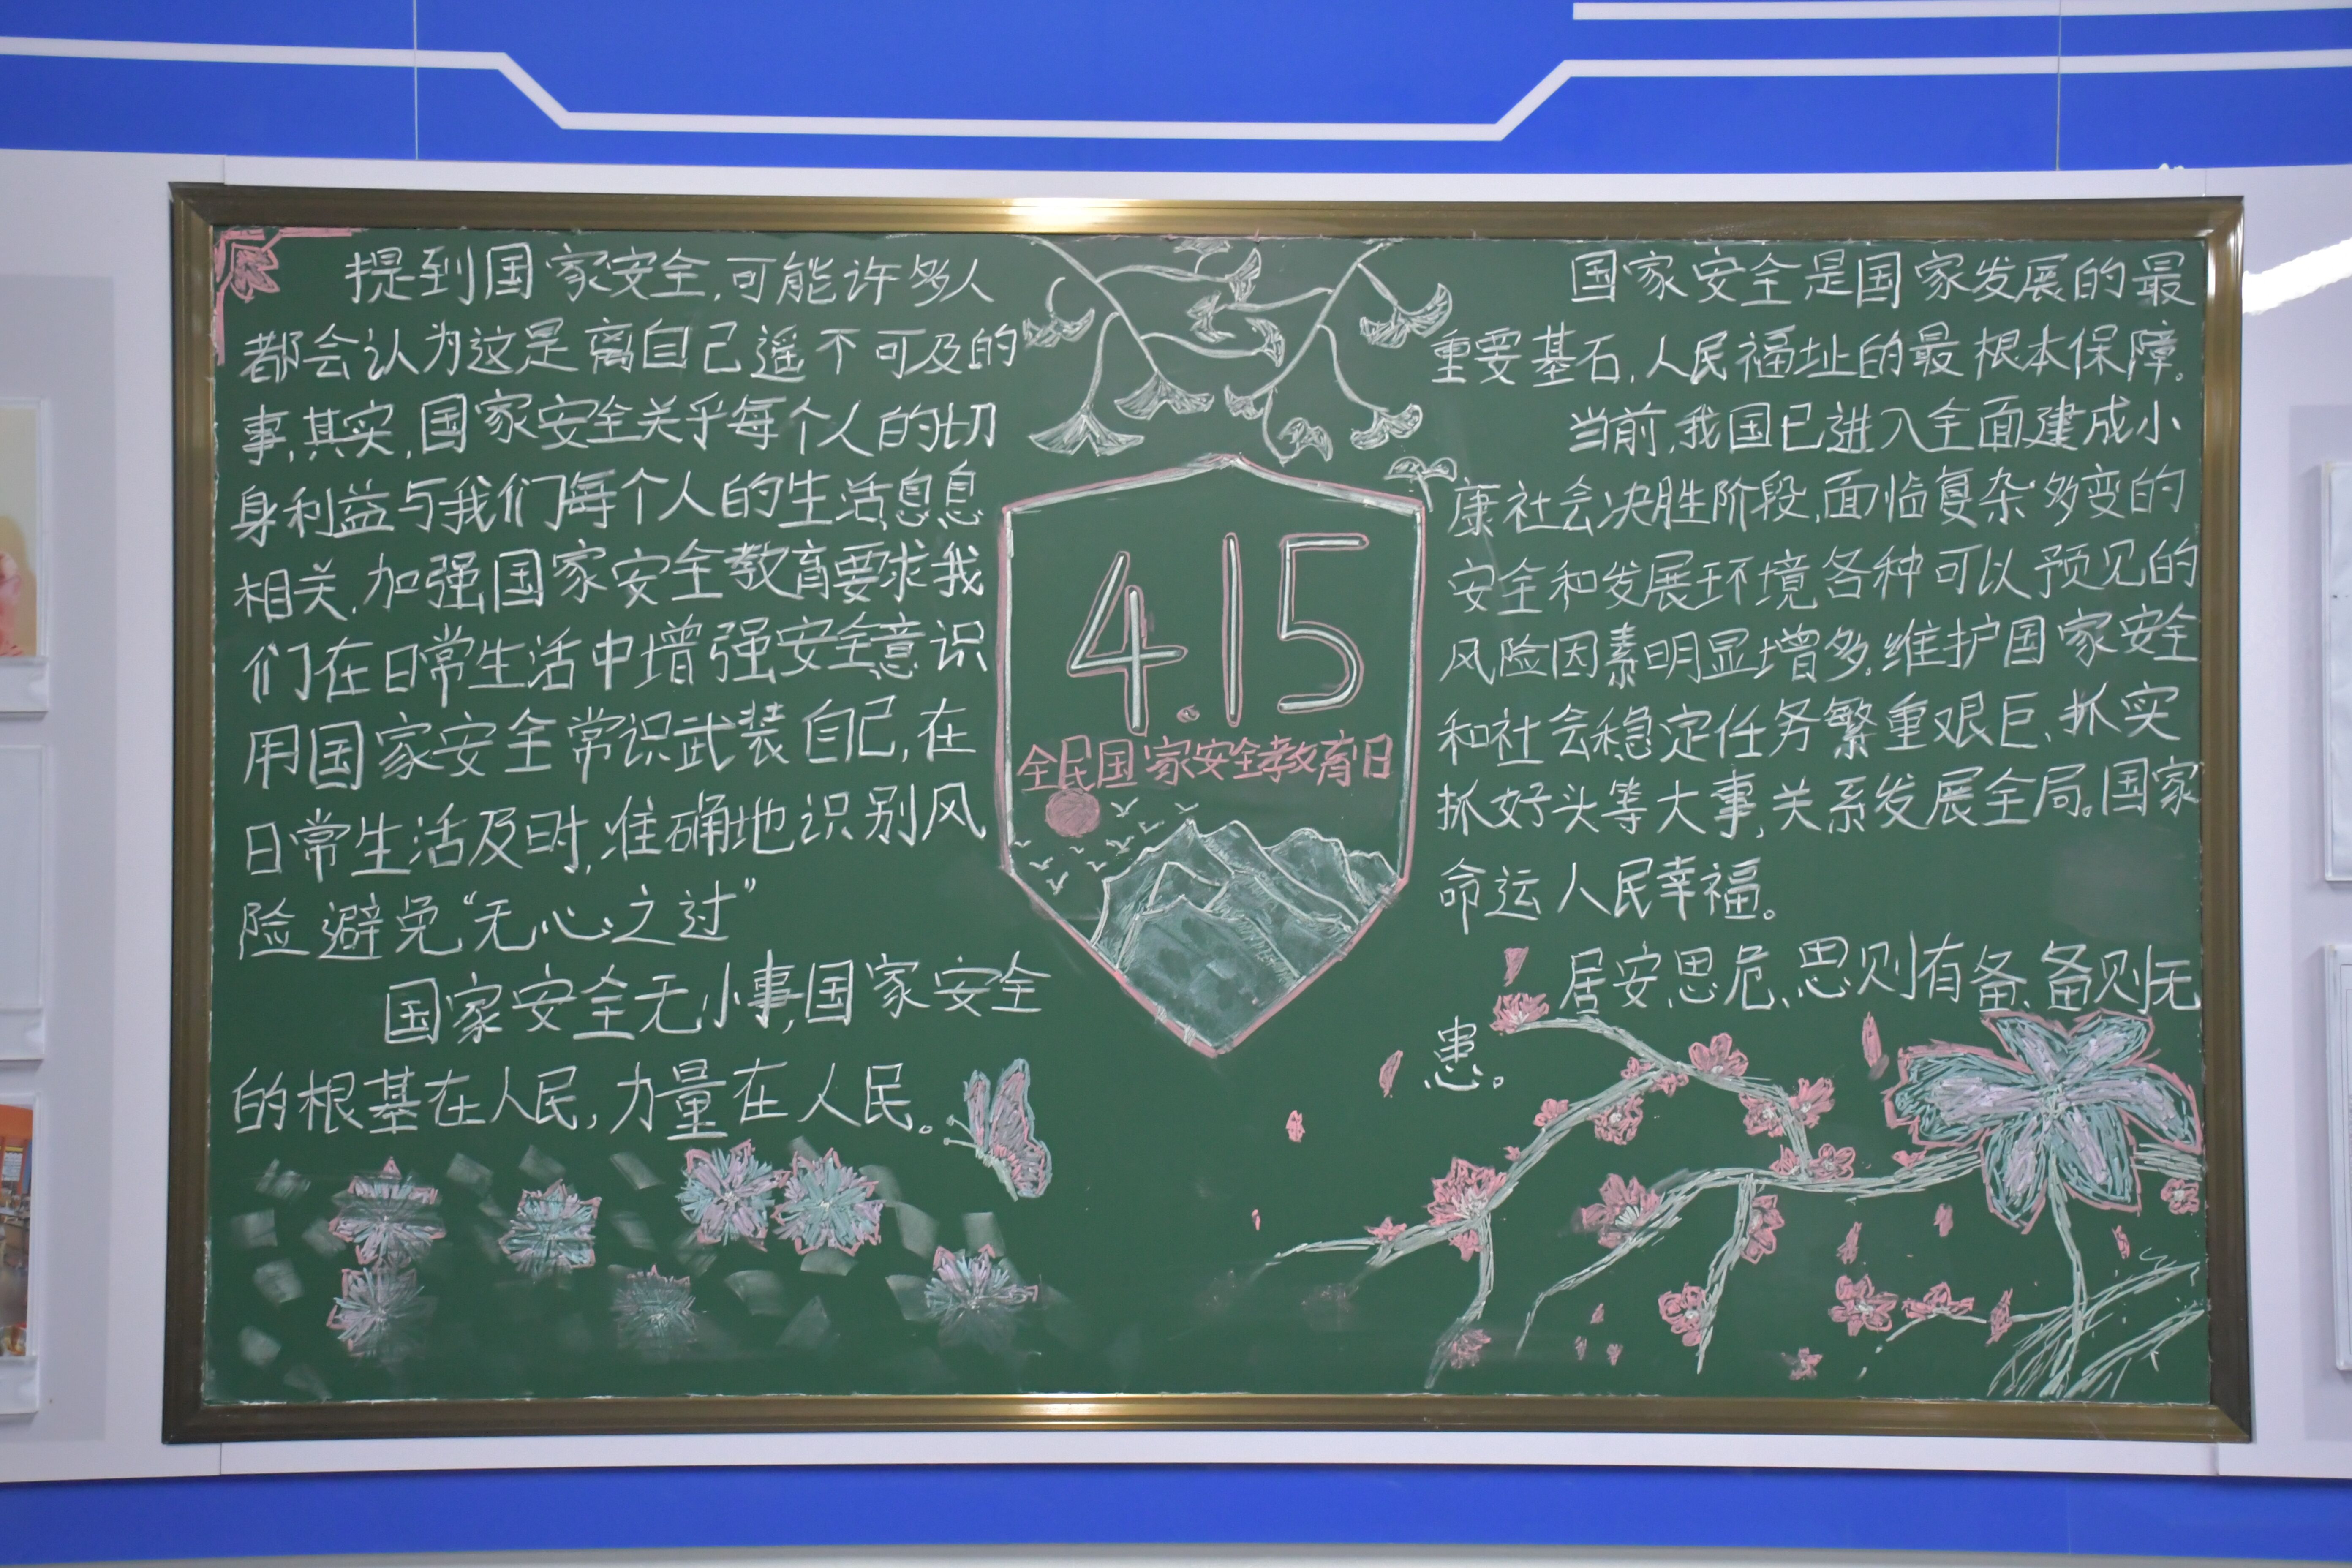 提到国家安全,可能许多人
都会认为这是离自己遥不可及的
事,其实,国家安全关乎每个人的切
身利益与我们每个人的生活息息
相关,加强国家安全教育要求我
们在日常生活中增强安全意识
用国家安全常识武装自己,在
日常生活及时,准确地识别风
险避免“无心之过”
国家安全无小事,国家安全
的根基在人民,力量在人民。
4.15
全民国家安全教育日
国家安全是国家发展的最
重要基石,人民福址的最根本保障。
当前,我国已进入全面建成小
康社会决胜阶段,面临复杂多变的
安全和发展环境各种可以预见的
风险因素明显增多,维护国家安全
和社会稳定任务繁重艰巨、抓实
抓好头等大事,关系发展全局。国家
命运人民幸福。
居安思危、思则有备、备则无
患。